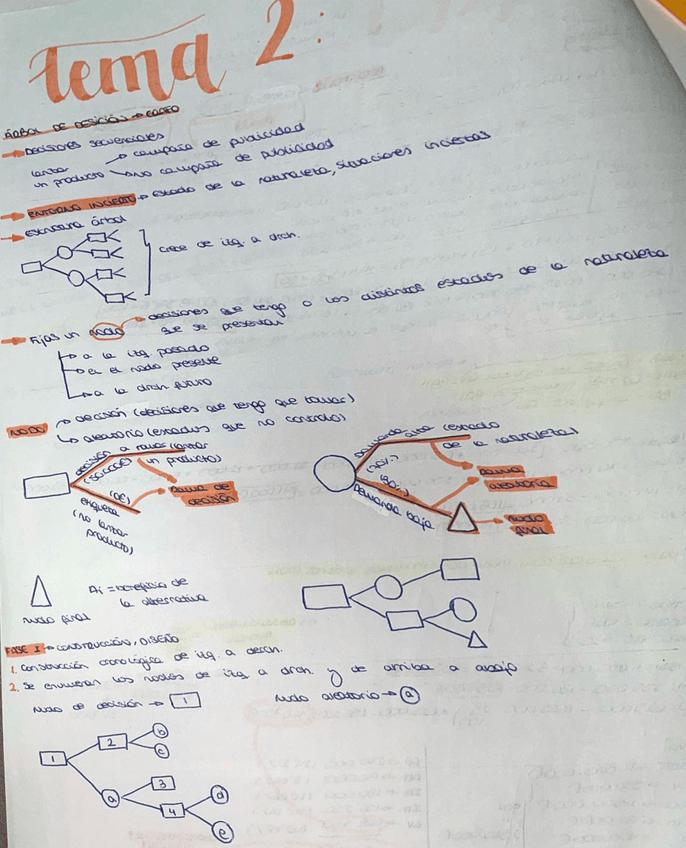 tema 2:
ÁRBOL DE DESICIÓN →
→ Decisiones secuenciales
lanzar → campaña de publicidad
un producto → no campaña de publicidad
→ ENTORNO INCIERTO → estado de la naturaleza, situaciones inciertas
→ Estructura árbol
crece de izq. a drch.
→ Fijas un nodo → decisiones que tengo o los distintos estados de la naturaleza
que se presentan
→ a la izq pasado
→ en el nodo presente
→ a la drch futuro
NODO → decisión (decisiones que tengo que tomar)
→ aleatorio (estados que no controlo)
decisión a tomar (lanzar
un producto)
(50.000€)
(0€)
etiqueta
(no lanzar
producto)
Rama de
decisión
demanda alta (estado
de la naturaleza)
Demanda baja
Rama
aleatoria
nodo
final
nudo final
Ai = beneficio de
la alternativa
FASE I → CONSTRUCCIÓN, DISEÑO
1. Construcción cronológica de izq. a derch.
2. Se enumeran los nodos de izq a drch. y de arriba a abajo
Nudo de decisión → 1
Nudo aleatorio → a
1
2
b
c
a
3
4
d
e